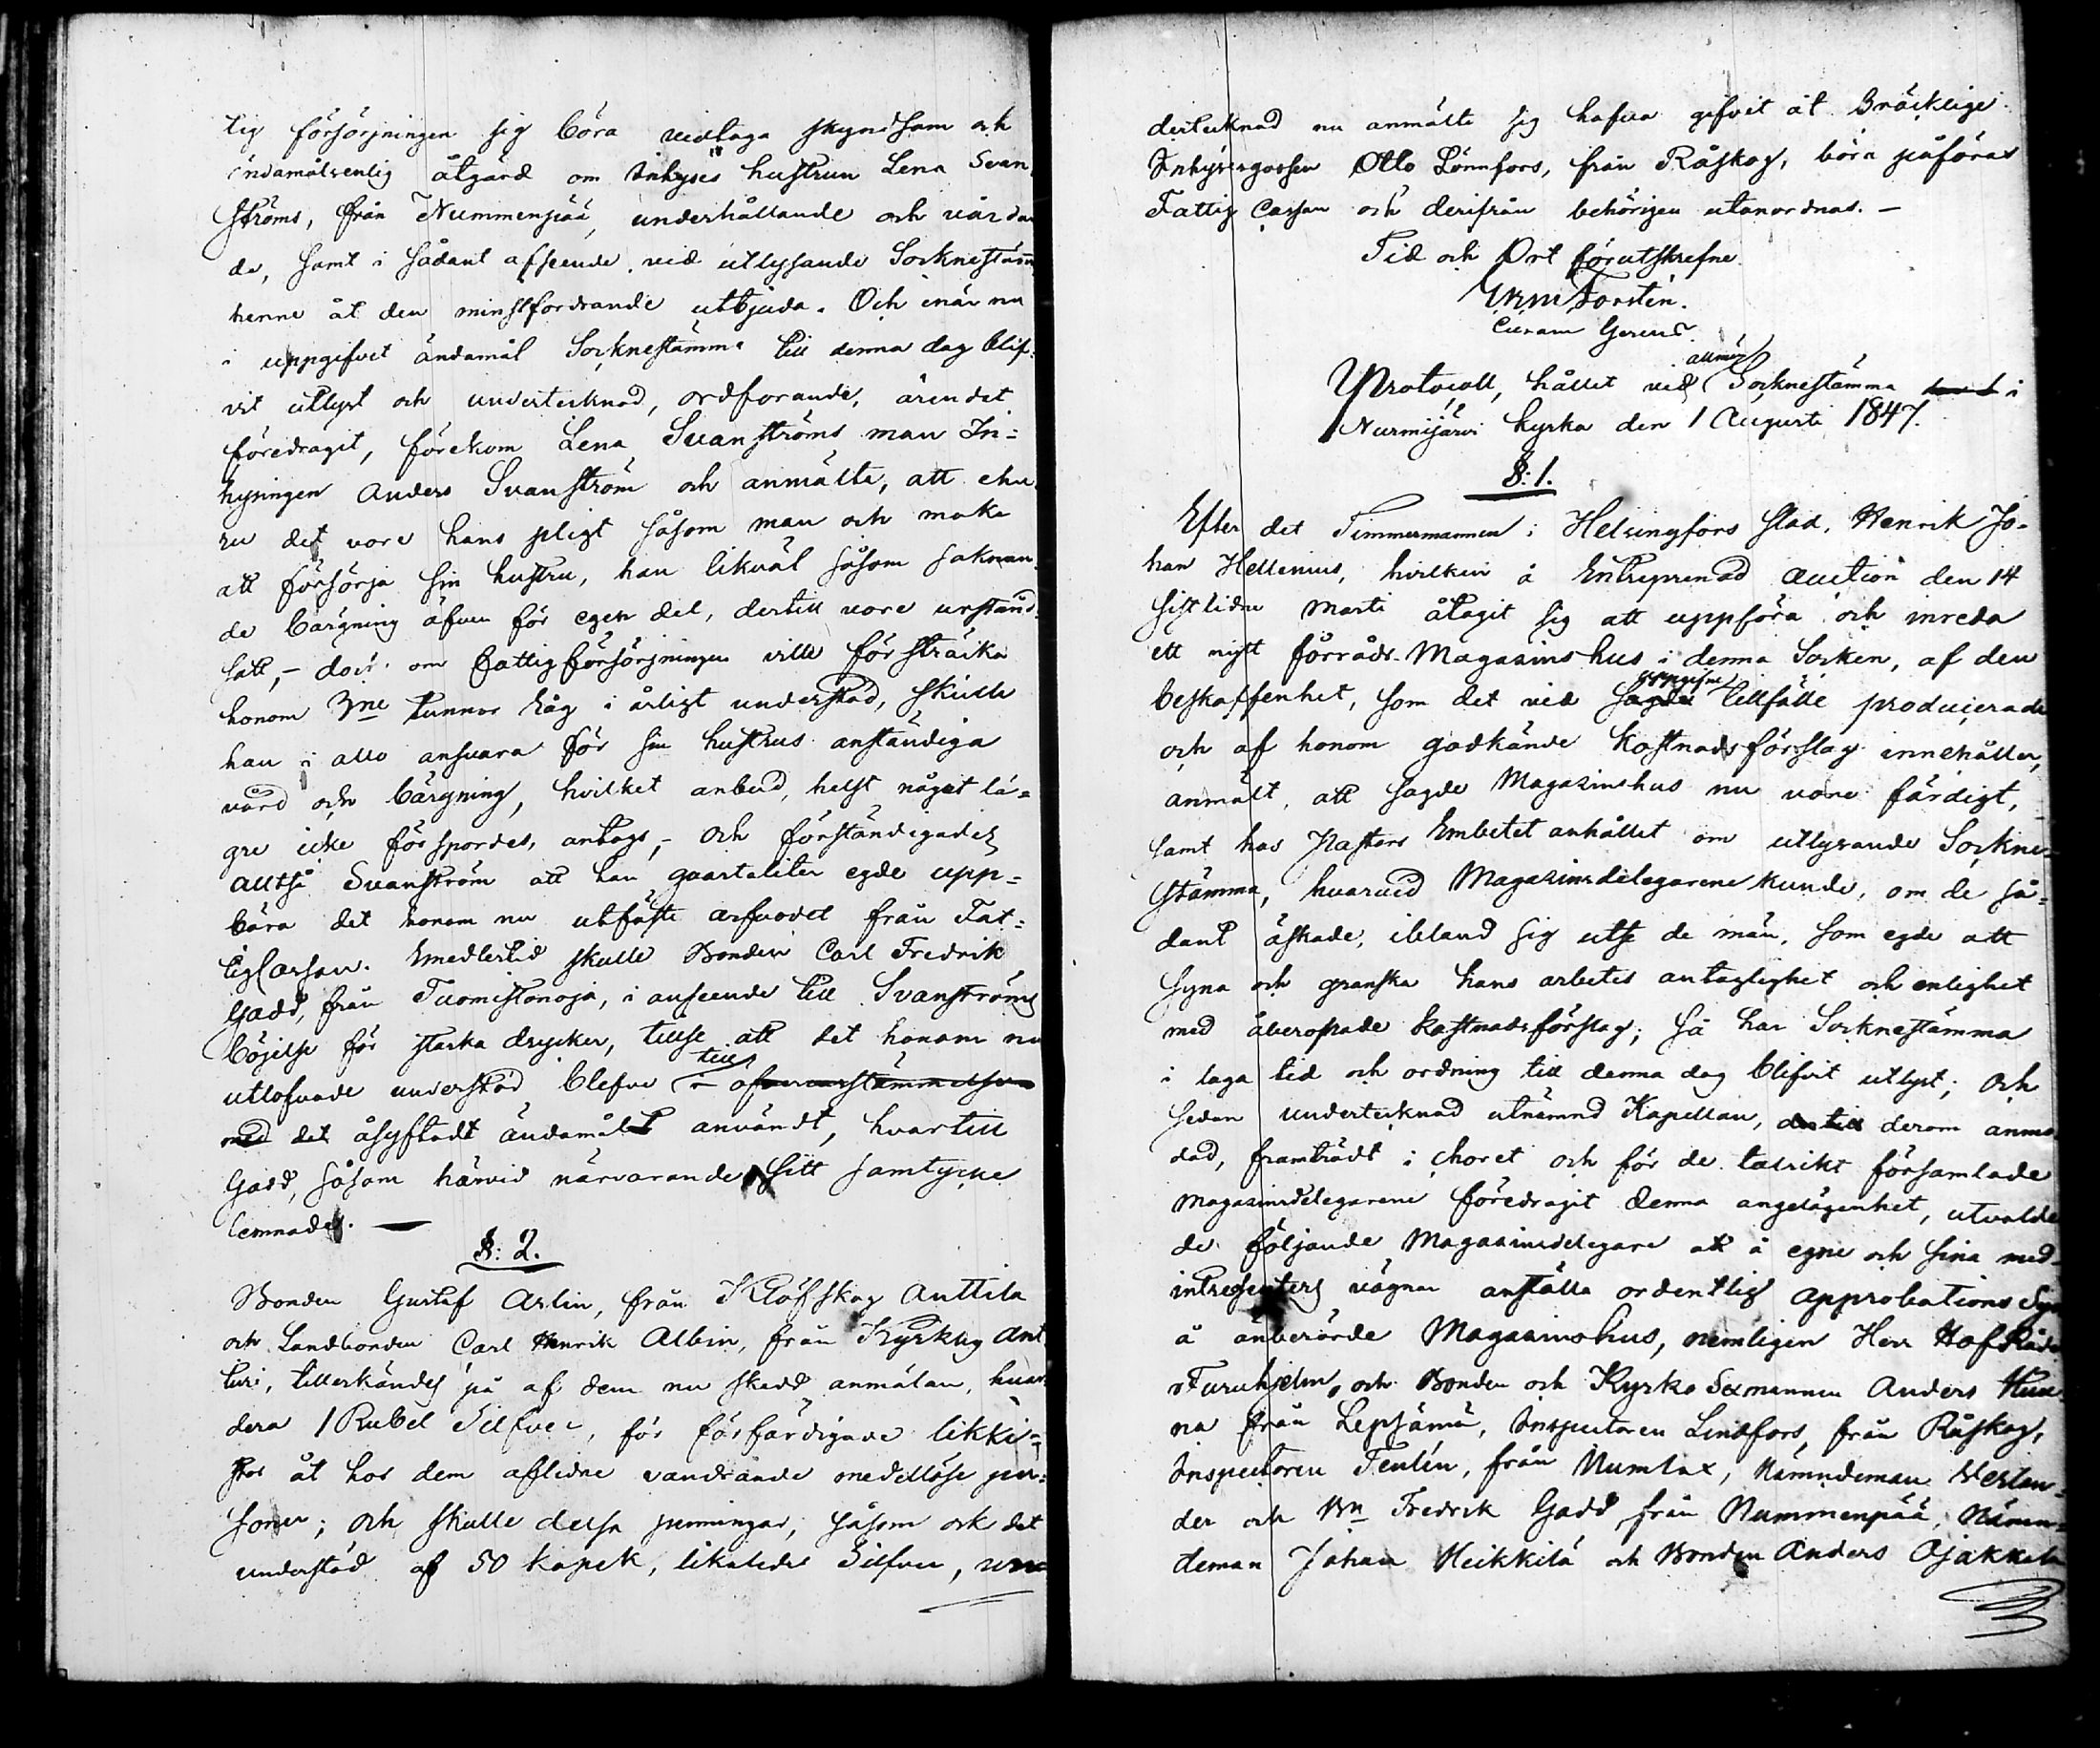 tig försörjningen sig böra vidtaga skyndsam och
ändamålsenlig åtgärd om Inhyses hustrun Lena Svan
ströms, från Nummenpää, underhållande och vårdan
de, samt i sådant afseende vid utlysande Sockneståm
henne åt den minstfordrande utbjuda. Och enär nu
i uppgifvet ändamål Socknestämma till denna dag blif-
vit utlyst och undertecknad, ordforande, ärendet
föredragit, förekom Lena Svanströms man In-
hysingen Anders Svanström och anmälte, att ehu
ru det vore hans pligt såsom man och make
att försörja sin hustru, han likväl såsom saknan-
de bärgning äfven för egen del, dertill vore urstånd
satt, – doch om fattigförsörjningen ville försträcka
honom 3ne tunnor Råg i årligt understöd, skulle
han i allo ansvara för sin hustrus anständiga
vård och bärgning, hvilket anbud, helst något lä-
gre icke förspordes, antogs, – och förständigades
alltså Svanström att han quartaliter egde upp-
bära det honom nu utfäste arfvodet från Fat-
tigCassan. Emedlertid skulle Bonden Carl Fredrik
Gadd, från Tuomistonoja, i anseende till Svanströms
böjelse för starka drycker, tillse att det honom nu
utlofvade understöd blefve till i öfverensstämmelse
med det åsyftadt ändamålet användt, hvartill
Gadd, såsom härvid närvarande, sitt samtycke
lemnade. —
§: 2.
Bonden Gustaf Arlin, från Klöfskog Anttila
och Landbonden Carl Henrik Albin, från Kyrkby Ant
turi, tillerkändes på af dem nu skedd anmälan, hvar
dera 1 Rubel Silfver, för förfärdigade likki-
stor åt hos dem aflidne vandrande medellöse per-
soner; och skulle dessa penningar, såsom ock det
understöd af 50 kopek, likaledes Silfver, un
dertecknad nu anmälte sig hafva gifvit åt Bräcklige
Inhysesgossen Otto Lönnfors, från Råskog, böra påföras
Fattig Cassan och derifrån behörigen utanordnas. —
Tid och Ort förutskrefne.
Forstén.
Curam Gerens.
Protocoll, hållet vid allmän Socknestämma i
Nurmijärvi kyrka den 1 Augusti 1847.
§: 1.
Efter det Timmermannen i Helsingfors stad, Henrik Jo-
han Hellenius, hvilken å Entreprenad Auction den 14
sistlidne Martii åtagit sig att uppföra och inreda
ett nytt förråds-Magasinshus i denna Socken, af den
beskaffenhet, som det vid sagde uppgifne tillfälle producerade
och af honom godkände kostnadsförslag innehåller,
anmält, att sagde Magasinshus nu vore färdigt,
samt hos Pastors Embetet anhållet om utlysande Sockne-
stämma, hvarvid Magasinsdelegarene kunde, om de så-
dant äskade, ibland sig utse de män, som egde att
syna och granska hans arbetes antaglighet och enlighet
med åberopade kostnadsförslag; så har Socknestämma
i laga tid och ordning till denna dag blifvit utlyst; och
sedan undertecknad utnämnd Kapellan, derom anmo
dad, framträdt i choret och för de talrikt församlade
Magasinsdelegarene föredragit denna angelägenhet, utvalde
de följande Magasinsdelegare att å egne och sina med-
intressenters vägnar anställa ordentlig approbations Syn
å änberörde Magasinshus, nemligen Herr HofRådet
Furuhjelm, och Bonden och Kyrko Sexmannen Anders
na från Lepsämä, Inspectoren Lindfors, från Råskog,
Inspectoren Tenlén, från Numlax, Nämndeman Westen-
der och Bn Fredrik Gadd från Nummenpää, Nämn-
deman Johan Heikkilä och Bonden Anders Ojakkala